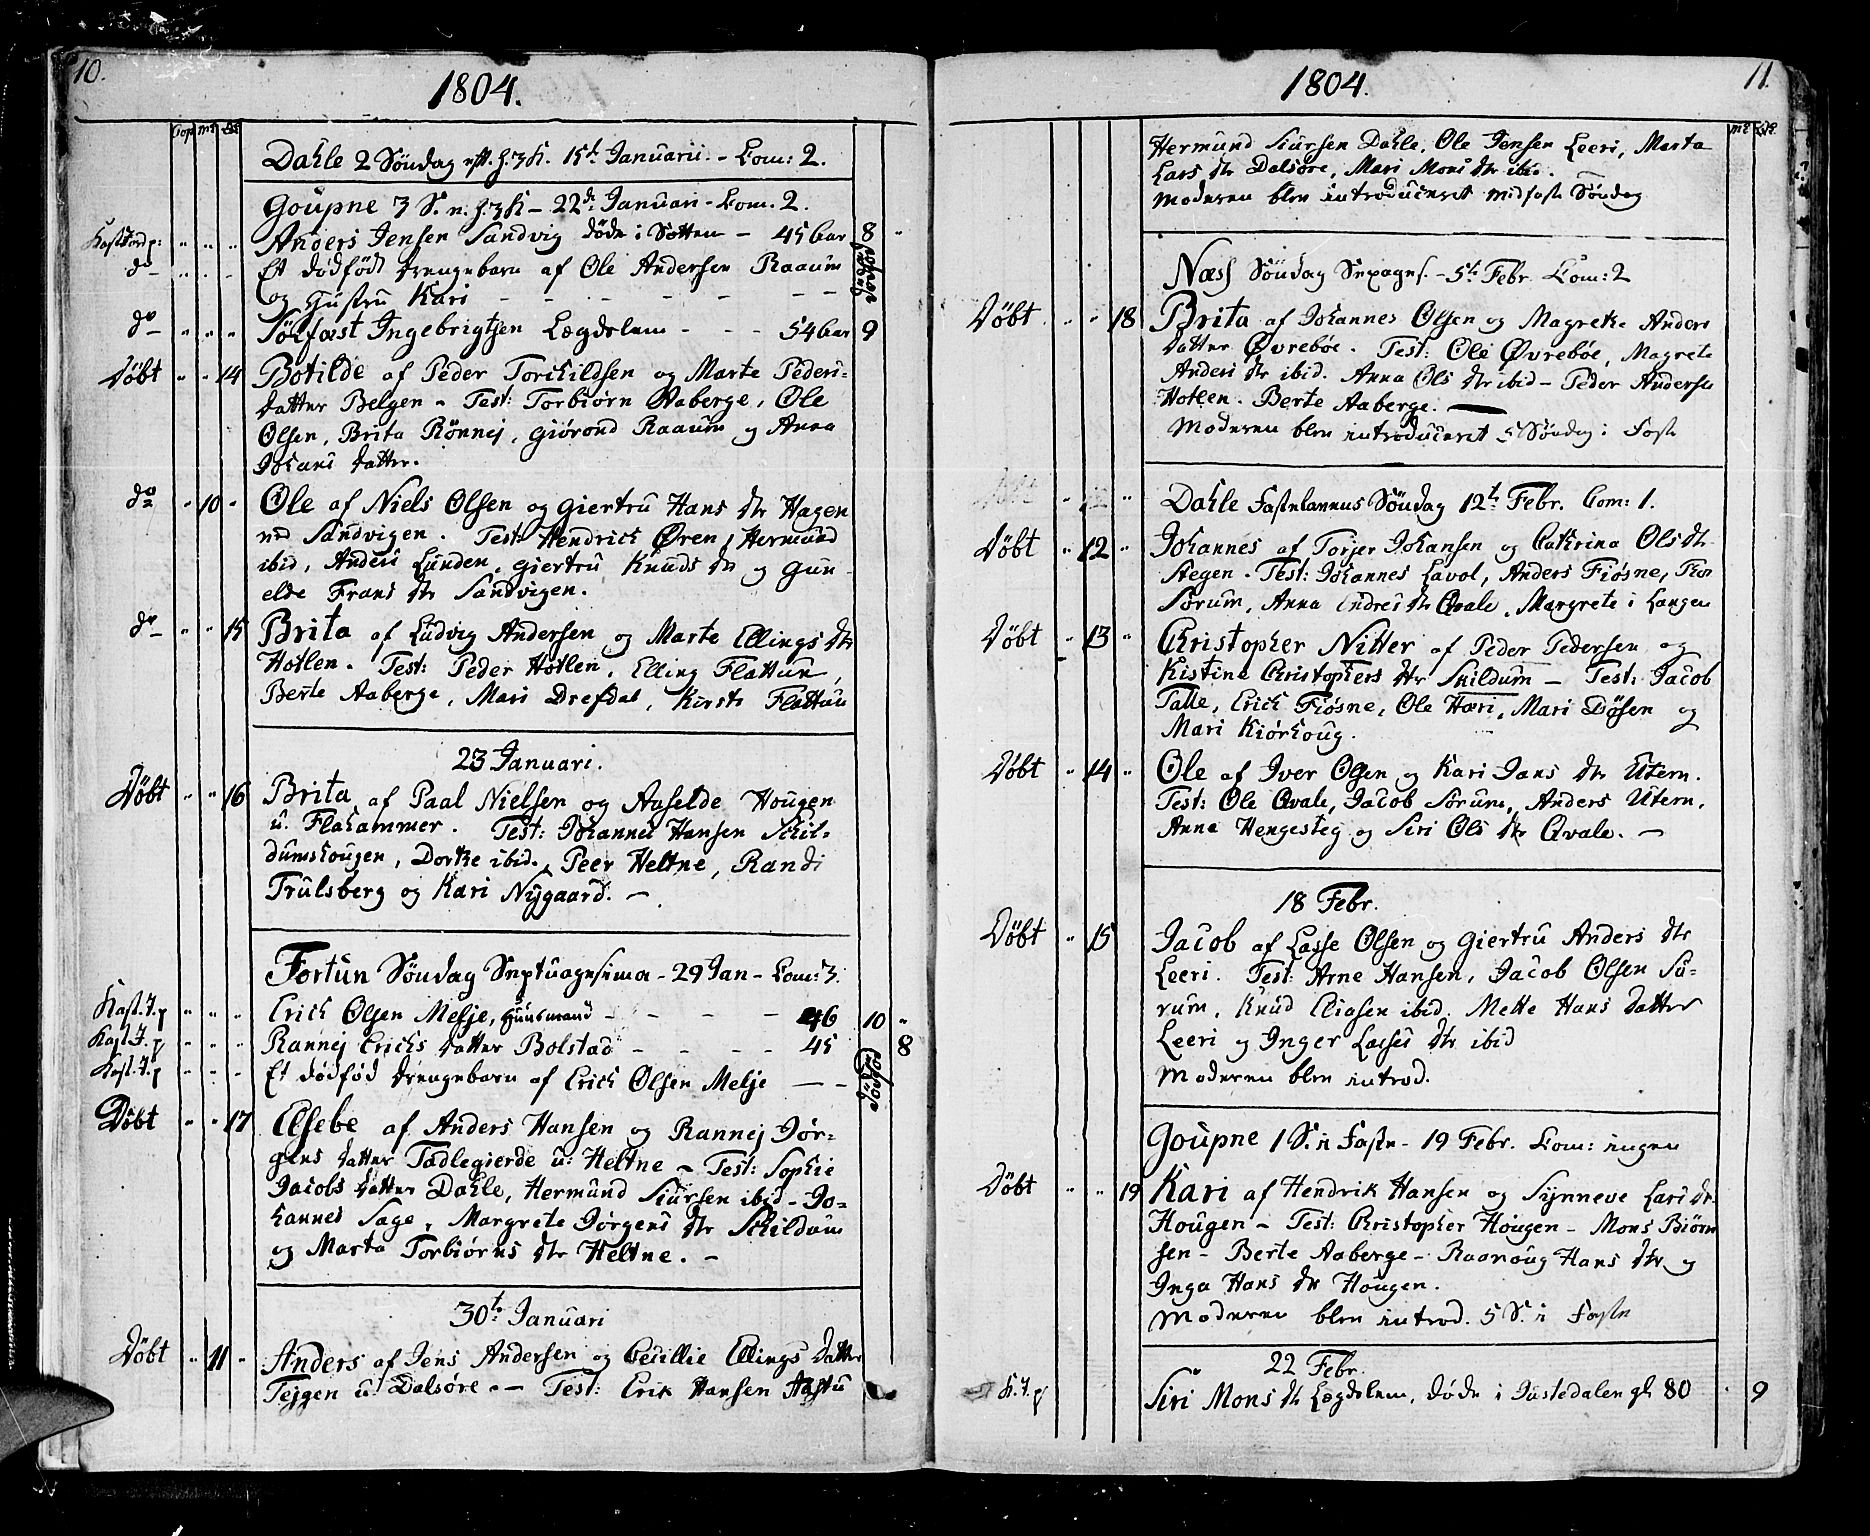 10.
1804.
Cop. mk ß
Dahle 2 Söndag eft. h.3k. 15de Januarii. - Com: 2.
Goupne 3 S. n. h.3k - 22de Januari - Com. 2.
Kast. Jord p: " " " Anders Jensen Sandvig døde i Sotten - 45 aar 8 "
do - " " " Et dödfödt drengebarn af Ole Andersen Raaum dödfød
og Hustru Kari - - - - - -
do - " " " Sølfæst Ingebrigtsen Lægdelem - - - 54 aar 9
Döbt " " 14 Botilde af Peder Torchildsen og Marte Peders-
datter Belgen - Test: Torbiørn Aaberge, Ole
Olsen, Brita Rönnej, Giörond Raaum og Anna
Johans datter.
do " 10 " Ole af Niels Olsen og Giertru Hans dtr Hagen
ned Sandvigen. Test: Hendrich Øren, Hermund
ibid, Anders Lunden, Giertru Knuds dtr og Gun-
elde Frans dtr Sandvigen.
do - " " 15 Brita af Ludvig Andersen og Marte Ellings dtr
Hotlen. Test: Peder Hotlen, Elling Flattun,
Berte Aaberge, Mari Drefdal, Kirste Flattun
23 Januari.
Döbt " " 16 Brita af Paal Nielsen og Anselde Hougen
u. Flahammer. Test: Johannes Hansen Schil-
dumshougen, Dorthe ibid., Peer Heltne, Randi
Trulsberg og Kari Nygaard. -
Fortun Söndag Septuagesima - 29 Jan - Com: 3.
Kast. J. p " " " Erich Olsen Melje, Huusmand - - - - 46 10 "
Kast J. p " " " Rannej Erichs datter Bolstad - - - - 45 8
Kast. J. p " " " Et dödfød drengebarn af Erich Olsen Melje - - dödfød
Döbt " " 17 Elsebe af Anders Hansen og Rannej Jör-
gens datter Tadlegierde u: Heltne - Test: Sophie
Jacobs datter Dahle, Hermund Siursen ibid - Jo-
hannes Sage, Margrete Jörgens dtr Schildum
og Marta Torbiörns dtr Heltne. -
30te Januari
Döbt " 11 " Anders af Jens Andersen og Cecillie Ellings datter
Tejgen u. Dalsöre. - Test: Erik Hansen Hæstu
11.
1804.
mk
Hermund Siursen Dahle, Ole Jensen Leeri, Marta
Lars dtr Dalsöre, Mari Mons dtr ibid.
Moderen blev introduceret midfaste Söndag
Næss Söndag Sexages. - 5te Febr. Com: 2
Döbt " " 18 Brita af Johannes Olsen og Magrete Anders
datter Øvrebøe. Test: Ole Øvrebøe, Magrete
Anders dtr ibid. Anna Ols dtr ibid - Peder Andersen
Hotlen. Berte Aaberge.
Moderen blev introduceret 5 Söndag i Faste
Dahle Fastelavnns Söndag 12te Febr. Com: 1.
Döbt " 12 " Johannes af Torjer Johansen og Cathrina Ols dtr
Stegen. Test: Johannes Lavol, Anders Fiøsne, Tor
Sorum, Anna Endres dtr Qvale, Margrete i Hangen
Döbt " 13 " Christopher Nitter af Peder Pedersen og
Kistine Christophers dtr Skildum - Test: Jacob
Talle, Erich Fiøsne, Ole Hæri, Mari Døsen og
Mari Kiörhoug.
Döbt " 14 " Ole af Iver Olsen og Kari Jans dtr Utern.
Test: Ole Qvale, Jacob Sorum, Anders Utern,
Anne Hengesteg og Siri Ols dtr Qvale. -
18 Febr.
Döbt " 15 Jacob af Lasse Olsen og Giertru Anders dtr
Leeri. Test: Arne Hansen, Jacob Olsen So-
rum, Knud Eliasen ibid. Mette Hans datter
Leeri og Inger Lasses dtr ibid
Moderen blev introd.
Goupne 1 S. i Faste - 19 Febr. Com: ingen
Döbt " " 19 Kari af Hendrik Hansen og Synneve Lars dr.
Hougen - Test: Christopher Hougen - Mons Biörn
sen - Berte Aaberge - Raanoug Hans dtr og
Inga Hans dr Hougen.
Moderen blev introd. 5 S. i Faste
22 Febr.
K. J. p Siri Mons dtr Lægdelem, döde i Justedalen gl. 80 " 9